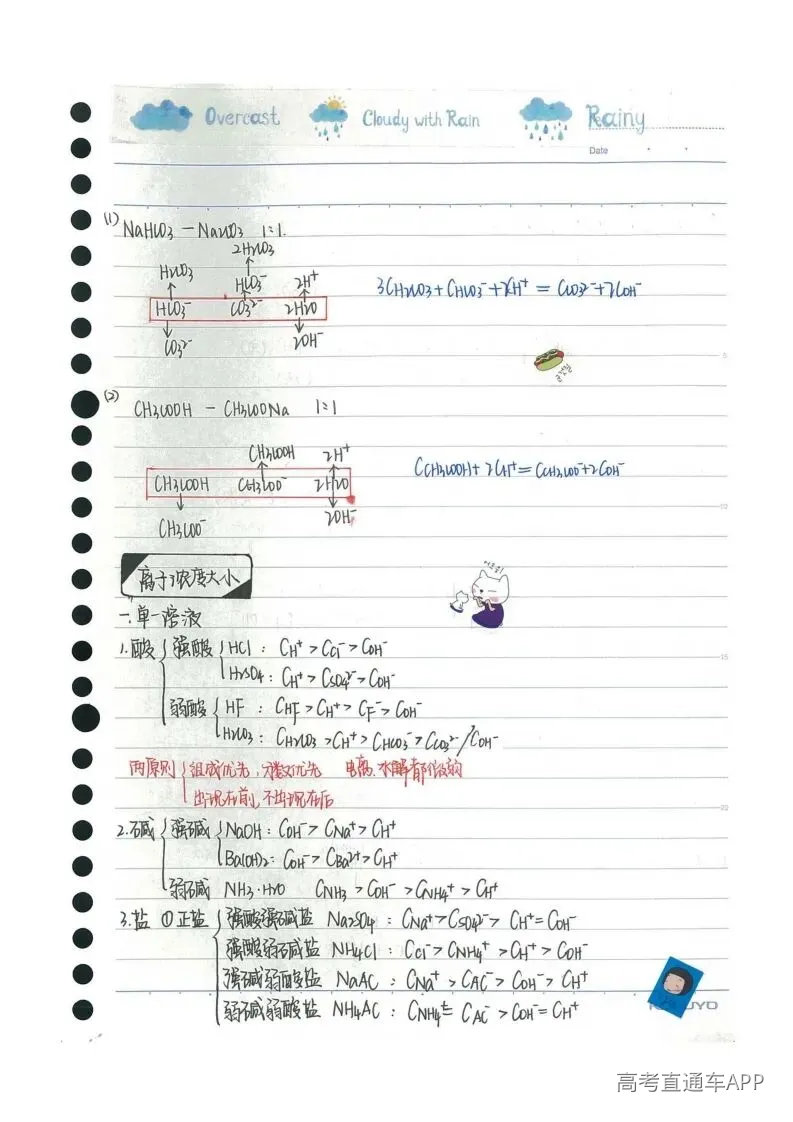 Overcast Cloudy with Rain Rainy
Date
(1) NaHCO3 - Na2CO3 1:1.
2H2CO3
H2CO3 HCO3⁻ 2H⁺
HCO3⁻ CO3²⁻ 2H2O
CO3²⁻ 2OH⁻
3CH2CO3 + CHCO3⁻ + 2CH⁺ = CCO3²⁻ + 2COH⁻
5
(2) CH3COOH - CH3COONa 1:1
CH3COOH 2H⁺
CH3COOH CH3COO⁻ 2H2O
CH3COO⁻ 2OH⁻
CCH3COOH + 2CH⁺ = CCH3COO⁻ + 2COH⁻
10
离子浓度大小
一.单一溶液
1.酸 强酸 HCl : CH⁺ > CCl⁻ > COH⁻
H2SO4: CH⁺ > CSO4²⁻ > COH⁻
15
弱酸 HF : CHF > CH⁺ > CF⁻ > COH⁻
H2CO3: CH2CO3 > CH⁺ > CHCO3⁻ > CCO3²⁻/COH⁻
两原则 组成优先,分数优先 电离.水解都微弱的
出现在前,不出现在后
22
2.碱 强碱 NaOH: COH⁻ > CNa⁺ > CH⁺
Ba(OH)2: COH⁻ > CBa²⁺ > CH⁺
弱碱 NH3·H2O CNH3 > COH⁻ > CNH4⁺ > CH⁺
3.盐 ①正盐 强酸强碱盐 Na2SO4: CNa⁺ > CSO4²⁻ > CH⁺ = COH⁻
强酸弱碱盐 NH4Cl : CCl⁻ > CNH4⁺ > CH⁺ > COH⁻
强碱弱酸盐 NaAC : CNa⁺ > CAC⁻ > COH⁻ > CH⁺
弱碱弱酸盐 NH4AC : CNH4⁺ = CAC⁻ > COH⁻ = CH⁺
高考直通车APP